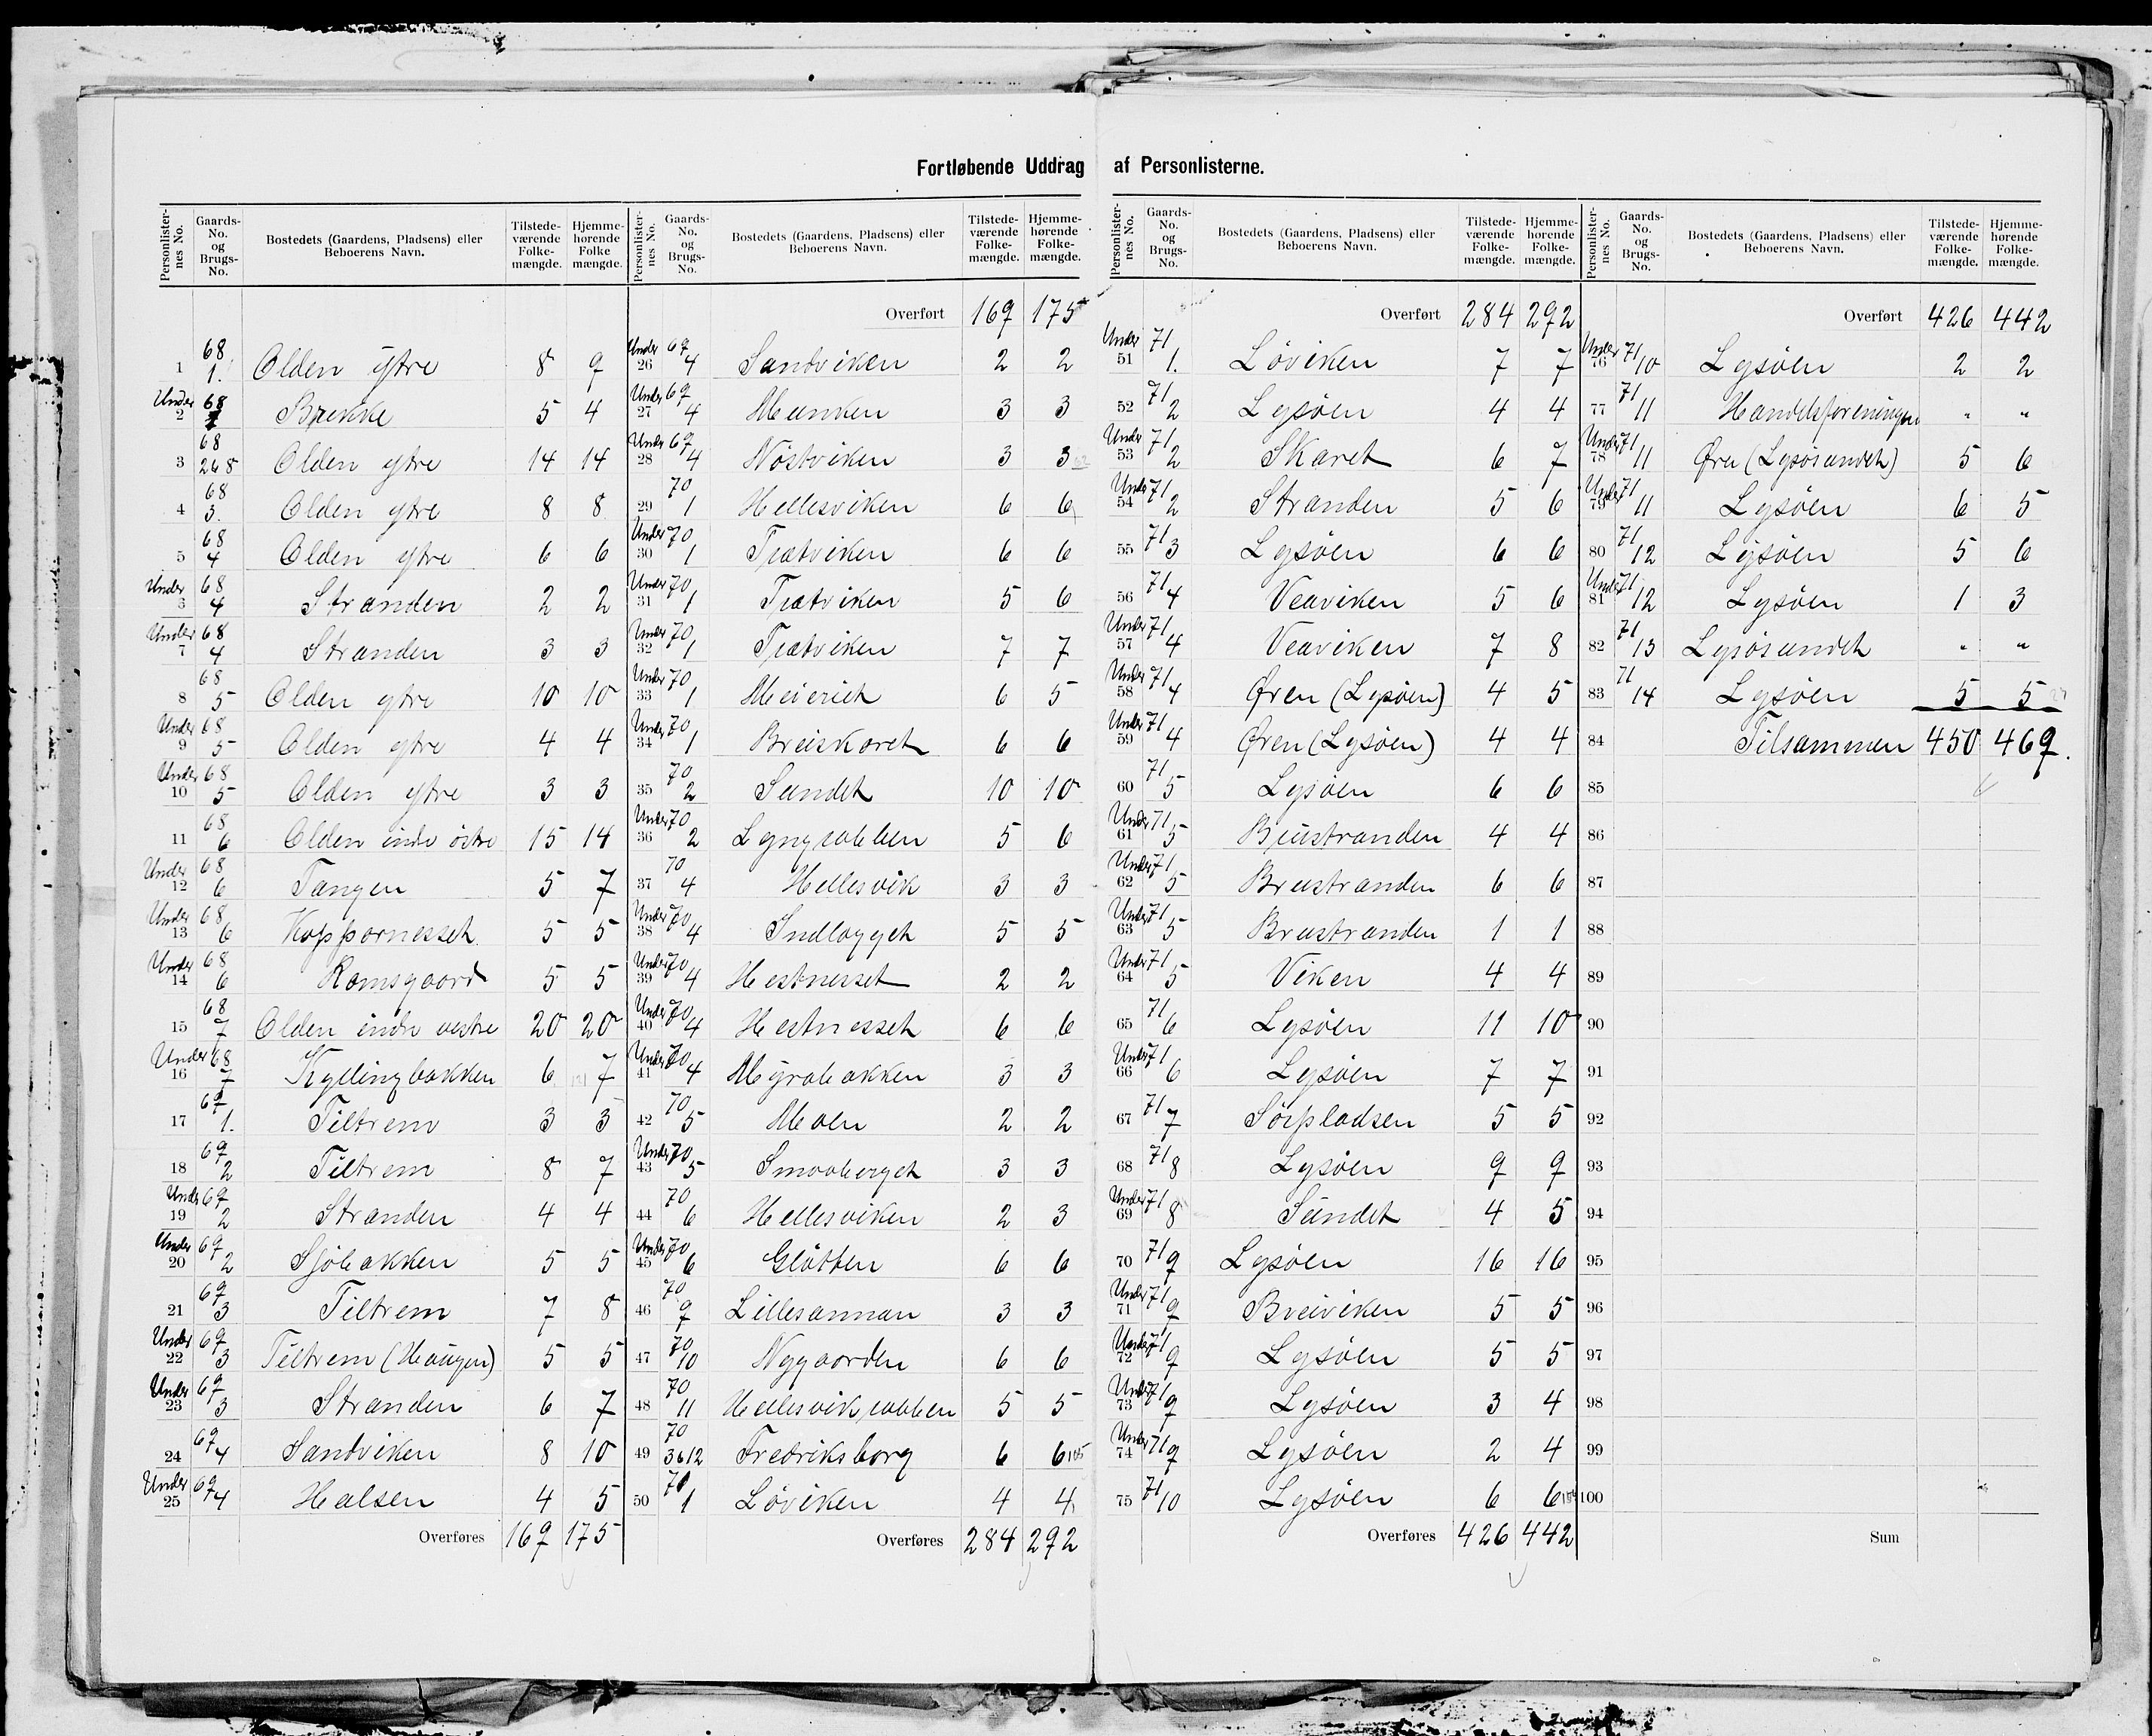 Fortløbende Uddrag af Personlisterne.
Personlister-nes No. Gaards-No. og Brugs-No. Bostedets (Gaardens, Pladsens) eller Beboerens Navn. Tilstede-værende Folke-mængde. Hjemme-hørende Folke mængde.
1 68 1. Olden ytre 8 9
Under 2 68 Brekke 5 4
3 68 2&8 Olden ytre 14 14
4 68 3. Olden ytre 8 8
5 68 4 Olden ytre 6 6
Under 3 68 4 Stranden 2 2
Under 7 68 4 Stranden 3 3
8 68 5 Olden ytre 10 10
Under 9 68 5 Olden ytre 4 4
Under 10 68 5 Olden ytre 3 3
11 68 6 Olden indre östre 15 14
Under 12 68 6 Tangen 5 7
Under 13 68 6 Koppornesset 5 5
Under 14 68 6 Ramsgaard 5 5
15 68 7 Olden indre vestre 20 20
Under 16 68 7 Kyllingbakken 6 7
17 69 1. Tiltrem 3 3
18 69 2 Tiltrem 8 7
Under 19 69 2 Stranden 4 4
Under 20 69 2 Sjöbakken 5 5
21 69 3 Tiltrem 7 8
Under 22 69 3 Tiltrem (Haugen) 5 5
Under 23 69 3 Stranden 6 7
24 69 4 Sandviken 8 10
Under 25 69 4 Halsen 4 5
Overføres 169 175
Personlister-nes No. Gaards-No. og Brugs-No. Bostedets (Gaardens, Pladsens) eller Beboerens Navn. Tilstede-værende Folke-mængde. Hjemme-hørende Folke-mængde.
Overført 169 175
Under 26 69 4 Sandviken 2 2
Under 27 69 4 Munken 3 3
Under 28 69 4 Nöstviken 3 3
29 70 1 Hellesviken 6 6
Under 30 70 1 Tjætviken 6 6
Under 31 70 1 Tjætviken 5 6
Under 32 70 1 Tjætviken 7 7
Under 33 70 1 Meieriet 6 5
Under 34 70 1 Breiskaret 6 6
35 70 2 Sundet 10 10
Under 36 70 2 Lyngrabben 5 6
37 70 4 Hellesvik 3 3
Under 38 70 4 Indlægget 5 5
Under 39 70 4 Hestnesset 2 2
Under 40 70 4 Hestnesset 6 6
Under 41 70 4 Myrabakken 3 3
42 70 5 Moen 2 2
Under 43 70 5 Smaaberget 3 3
44 70 6 Hellesviken 2 3
Under 45 70 6 Gløtten 6 6
46 70 9 Lillesannan 3 3
47 70 10 Nygaarden 6 6
48 70 11 Hellesvikrabben 5 5
49 70 3&12 Fredriksborg 6 6 105
50 71 1 Løviken 4 4
Overføres 284 292
Personlister-nes No. Gaards-No. og Brugs-No. Bostedets (Gaardens, Pladsens) eller Beboerens Navn. Tilstede-værende Folke-mængde. Hjemme-hørende Folke-mængde.
Overført 284 292
Under 51 71 1. Løviken 7 7
52 71 2 Lysøen 4 4
Under 53 71 2 Skaret 6 7
Under 54 71 2 Stranden 5 6
55 71 3 Lysøen 6 6
56 71 4 Veaviken 5 6
Under 57 71 4 Veaviken 7 8
Under 58 71 4 Øren (Lysøen) 4 5
Under 59 71 4 Øren (Lysøen) 4 4
60 71 5 Lysøen 6 6
Under 61 71 5 Brustranden 4 4
Under 62 71 5 Brustranden 6 6
Under 63 71 5 Brustranden 1 1
Under 64 71 5 Viken 4 4
65 71 6 Lysøen 11 10
Under 66 71 6 Lysøen 7 7
67 71 7 Sörpladsen 5 5
68 71 8 Lysøen 9 9
Under 69 71 8 Sundet 4 5
70 71 9 Lysøen 16 16
Under 71 71 9 Breiviken 5 5
Under 72 71 9 Lysøen 5 5
Under 73 71 9 Lysøen 3 4
Under 74 71 9 Lysøen 2 4
75 71 10 Lysøen 6 6
Overføres 426 442
Personlister-nes No. Gaards-No. og Brugs-No. Bostedets (Gaardens, Pladsens) eller Beboerens Navn. Tilstede-værende Folke-mængde. Hjemme-hørende Folke-mængde.
Overført 426 442
Under 76 71 10 Lysøen 2 2
77 71 11 Handelsforeningen " "
Under 78 71 11 Øren (Lysøsundet) 5 6
Under 79 71 11 Lysøen 6 5
80 71 12 Lysøen 5 6
Under 81 71 12 Lysøen 1 3
82 71 13 Lysøsundet " "
83 71 14 Lysøen 5 5
84 Tilsammen 450 469.
85
86
87
88
89
90
91
92
93
94
95
96
97
98
99
100
Sum